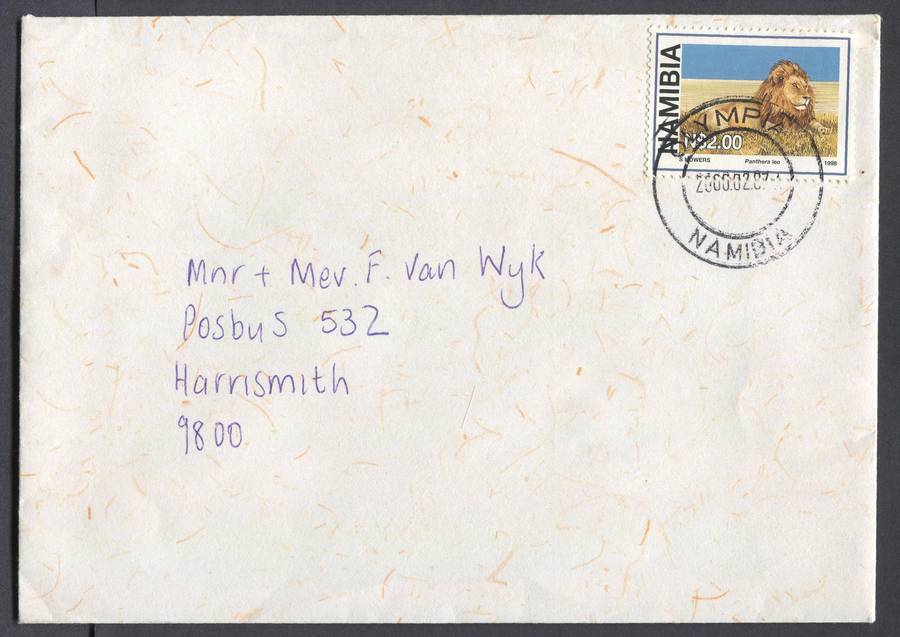 NAMIBIA
N$2.00
S BOWERS Panthera leo 1998
OLYMPIA
NAMIBIA
Mnr + Mev. F. Van Wyk
Posbus 532
Harrismith
9800